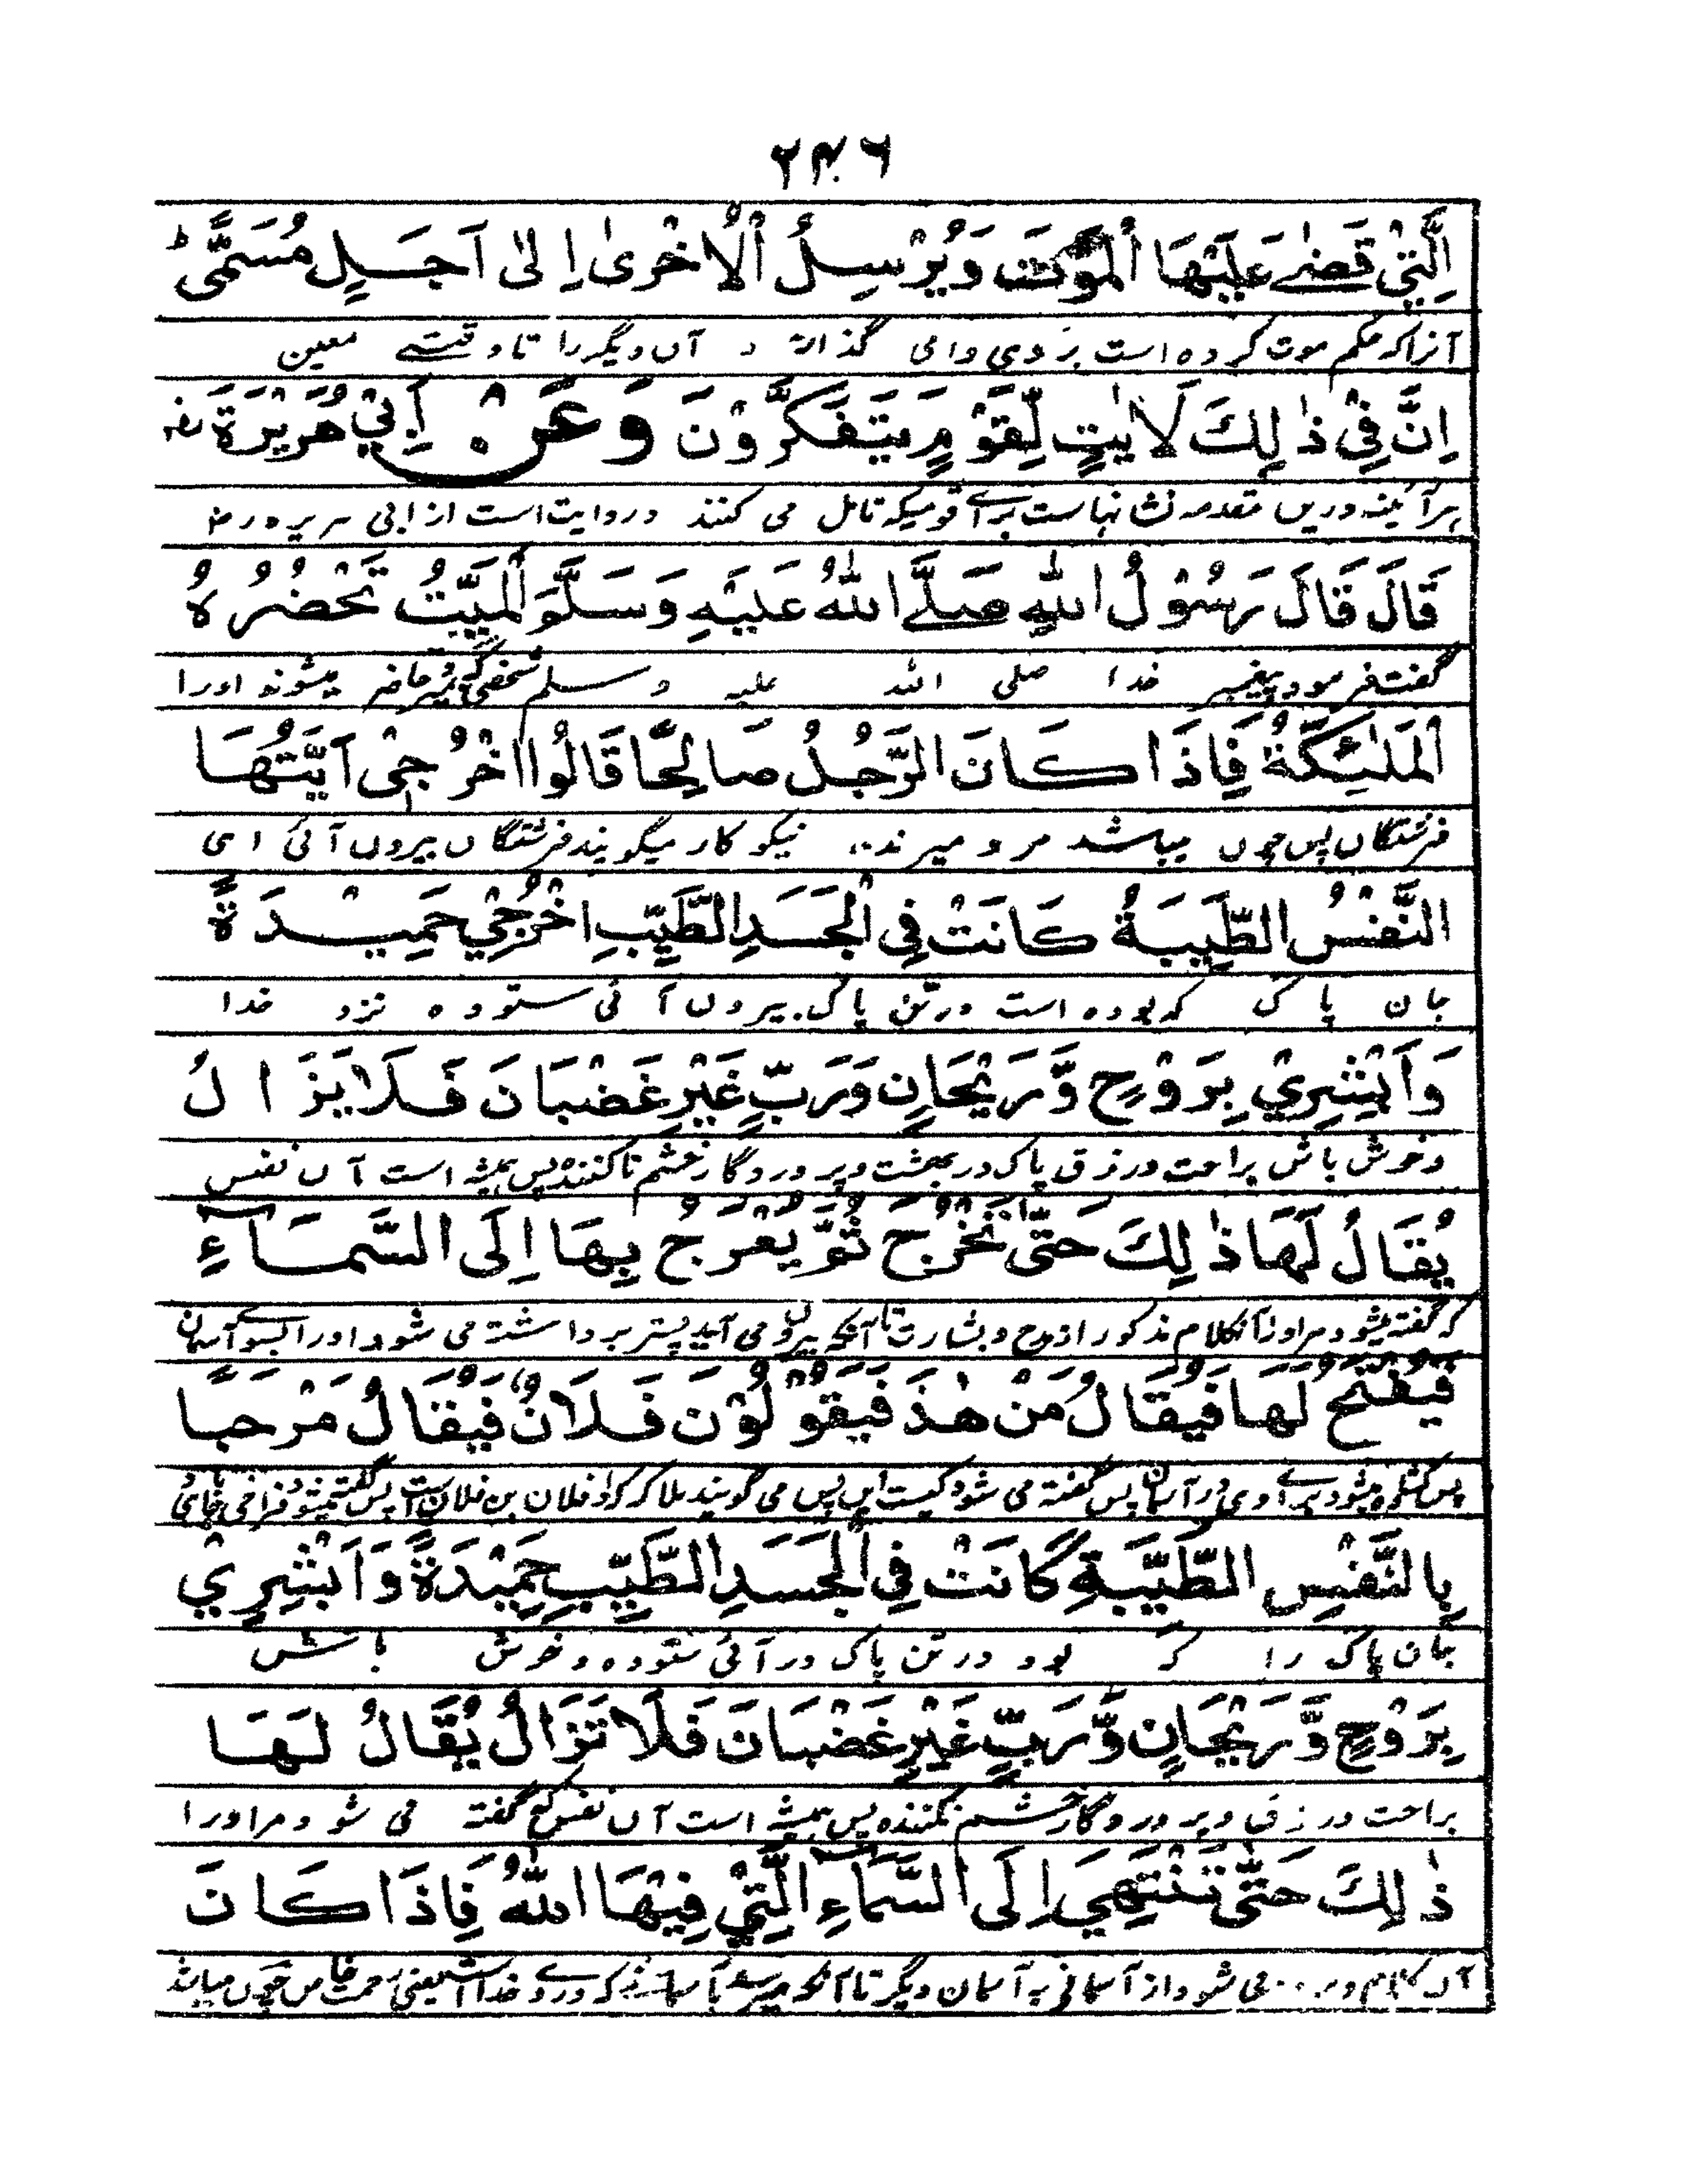 ٢٤٦
اِلَّتِيْ قَضٰے عَلَيْهَا الْمَوْتَ وَيُرْسِلُ الْاُخْرٰى اِلٰى اَجَلٍ مُسَمًّى ط
آنرا که حکم موت کرده است بروی وامی گذارد و آں دیگر را تا وقتے معین
اِنَّ فِيْ ذٰلِكَ لَاٰيٰتٍ لِّقَوْمٍ يَتَفَكَّرُوْنَ وَعَنْ اَبِيْ هُرَيْرَةَ رض
ہر آئینہ دریں مقدمہ نشانہاست برائے قومیکہ تامل می کنند و روایت است از ابی ہریرہ رض
قَالَ قَالَ رَسُوْلُ اللّٰهِ صَلَّے اللّٰهُ عَلَيْهِ وَسَلَّمَ الْمَيِّتُ تَحْضُرُهُ
گفت فرمود پیغمبر خدا صلی اللہ علیہ وسلم شخصی کہ میرد حاضر میشوند اورا
الْمَلٰئِكَةُ فَاِذَا كَانَ الرَّجُلُ صَالِحًا قَالُوا اخْرُجِيْ اَيَّتُهَا
فرشتگاں پس چوں میباشد مرد میرنده نیکو کار میگویند فرشتگاں بیروں آئی ای
النَّفْسُ الطَّيِّبَةُ كَانَتْ فِي الْجَسَدِ الطَّيِّبِ اخْرُجِيْ حَمِيْدَةً
جان پاک کہ بوده است در تن پاک بیروں آئی ستوده نزد خدا
وَاَبْشِرِيْ بِرَوْحٍ وَّرَيْحَانٍ وَرَبٍّ غَيْرِ غَضْبَانَ فَلَا يَزَالُ
وخوش باش براحت ورزق پاک در بهشت وپروردگار خشم ناکننده پس ہمیشہ است آں نفس
يُقَالُ لَهَا ذٰلِكَ حَتّٰى تَخْرُجَ ثُمَّ يُعْرَجُ بِهَا اِلَى السَّمَآءِ
کہ گفتہ میشود مراورا آں کلام مذکور از مدح وبشارت تا آنکہ بیروں می آید پستر برداشتہ می شود اورا بسوے آسمان
فَيُفْتَحُ لَهَا فَيُقَالُ مَنْ هٰذَ فَيَقُوْلُوْنَ فَلَانٌ فَيُقَالُ مَرْحَبًا
پس کشوده میشود برائے وی در آسمان پس گفتہ می شود کیست ایں پس می گویند ملائکہ کہ او فلان بن فلان است پس گفتہ میشود فراخی جای
بِالنَّفْسِ الطَّيِّبَةِ كَانَتْ فِي الْجَسَدِ الطَّيِّبِ حَمِيْدَةً وَاَبْشِرِيْ
جان پاک را کہ بود در تن پاک در آئی ستوده وخوش باش
بِرَوْحٍ وَّرَيْحَانٍ وَّرَبٍّ غَيْرِ غَضْبَانَ فَلَا تَزَالُ يُقَالُ لَهَا
براحت ورزق وپروردگار خشم نکننده پس ہمیشہ است آں نفس کہ گفتہ می شود مراورا
ذٰلِكَ حَتّٰى تَنْتَهِيَ اِلَى السَّمَاءِ الَّتِيْ فِيْهَا اللّٰهُ فَاِذَا كَانَ
آں کلام می شود از آسمانی بہ آسمان دیگر تا آنکہ میرسد کہ درو خداست یعنی رحمت خاص پس چوں میباشد